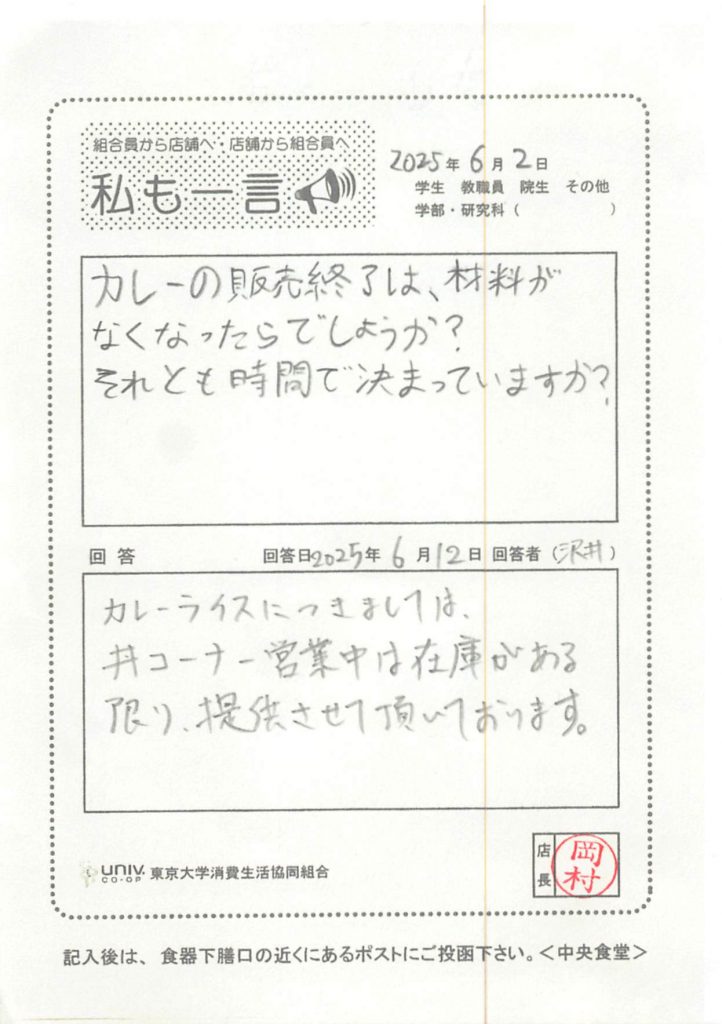 組合員から店舗へ・店舗から組合員へ
私も一言
2025年 6月 2日
学生 教職員 院生 その他
学部・研究科（ ）
カレーの販売終了は、材料が
なくなったらでしょうか？
それとも時間で決まっていますか？
回答 回答日2025年 6月12日 回答者（沢井）
カレーライスにつきましては、
丼コーナー営業中は在庫がある
限り、提供させて頂いております。
UNIV. CO-OP 東京大学消費生活協同組合
店長 岡村
記入後は、食器下膳口の近くにあるポストにご投函下さい。＜中央食堂＞